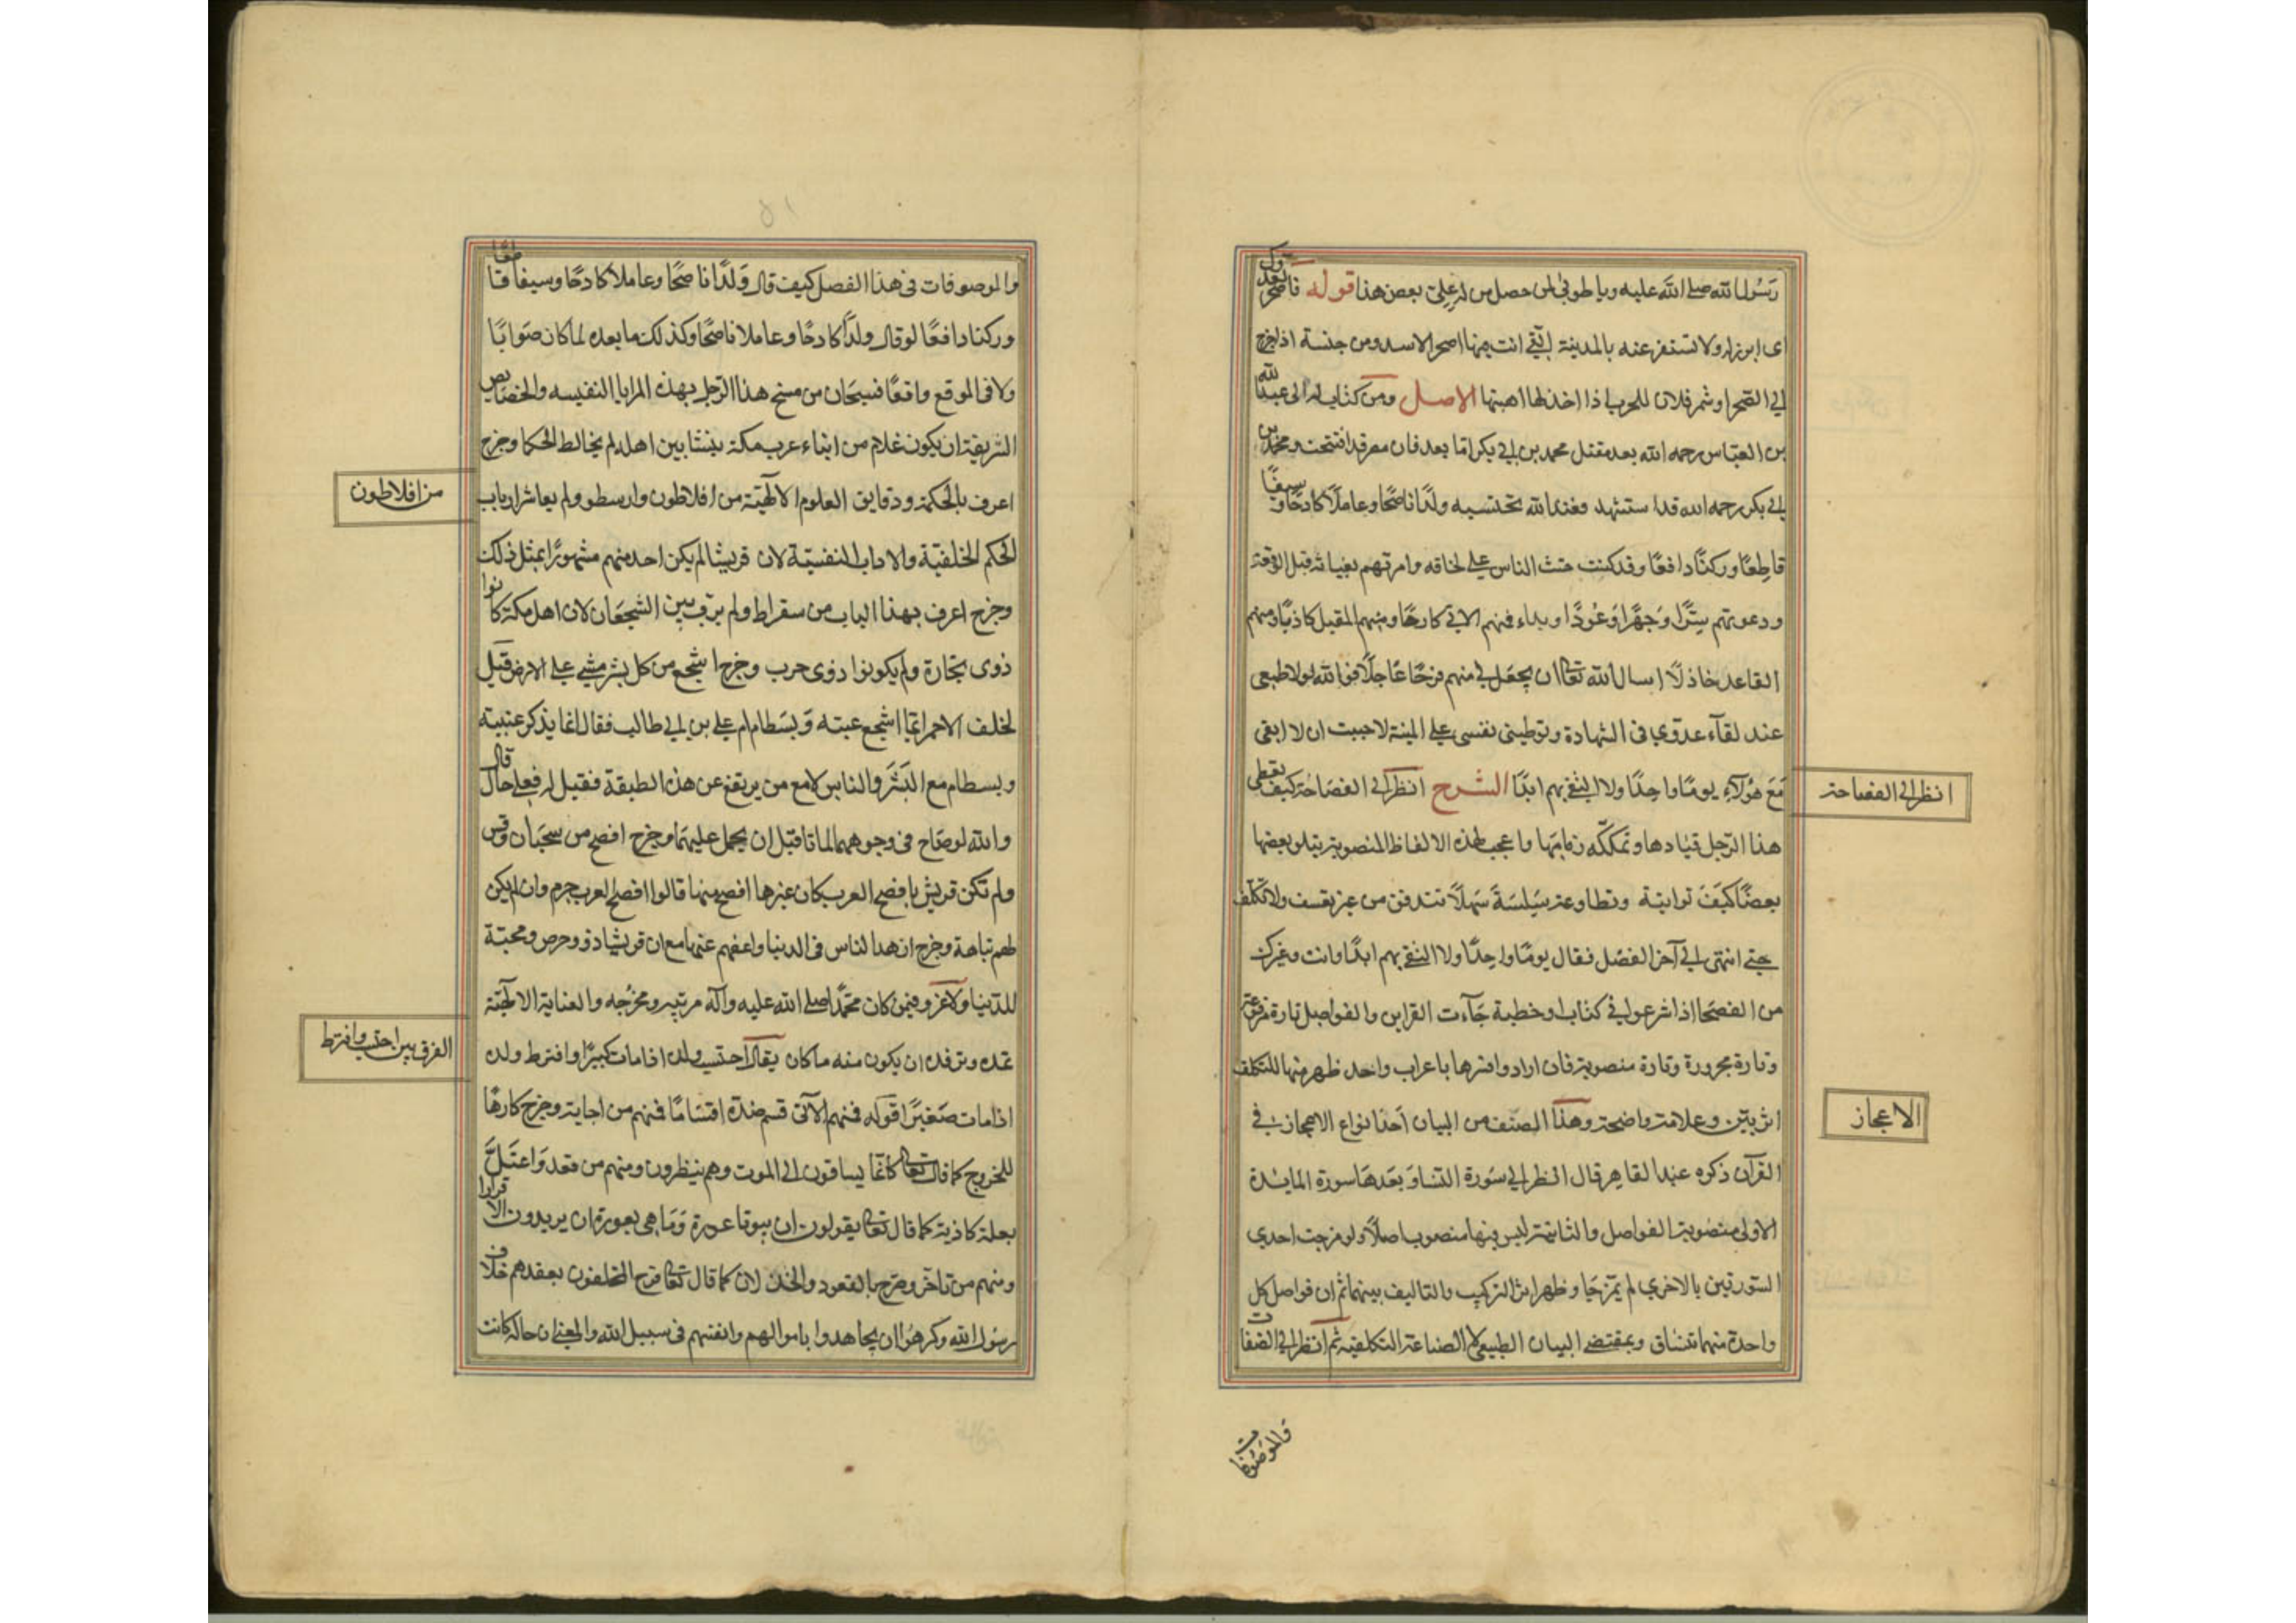 رَسُول الله صلى الله عليه ويا طوبى لمن حصل من لدن علي بعض هذا قوله فاصحر لعدوك
اى ابرز له ولا تستتر عنه بالمدينة التي انت فيها اصحر الاسد ومن جنسة اذا خرج
الى الصحرا وشمر فلان للحرب اذا اخذ لها اهبتها الاصل ومن كتاب له الى عبد الله
بن العباس رحمه الله بعد مقتل محمد بن ابي بكر اما بعد فان مصر قد افتتحت ومحمد بن
ابي بكر رحمه الله قد استشهد فعند الله نحتسبه ولدًا ناصحًا وعاملًا كادحًا وسيفًا
قاطِعًا وركنًا دافعًا وقد كنت حثث الناس على لحاقه وامرتهم بغياثه قبل الوقعة
ودعوتهم سِرًّا وَجهرًا وَعَودًا وبداء فمنهم الاتي كارهًا ومنهم المقبل كاذبًا ومنهم
القاعد خاذلًا اسال الله تعالى ان يجعل لي منهم فرجًا عاجلًا فوالله لولا طمعى
عند لقآء عدوي فى الشهادة وتوطينى نفسى على المنية لاحببت ان لا ابقى
مَعَ هؤلآءِ يومًا واحِدًا ولا التقى بهم ابدًا الشرح انظر الى الفصَاحة كيف تعطى
هذا الرّجل قيادها وتملكه زمامها واعجب لهذه الالفاظ المنصوبة يتلو بعضها
بعضًا كيَفَ تواتية وتطاوعه سَلِسَةً سَهلًا تتدفق من غير تعسف ولا تكلف
حتى انتهى الى آخر الفصل فقال يومًا واحِدًا ولا التقى بهم ابدًا وانت وغيرك
من الفصحَا اذا شرعوا في كتاب او خطبة جَآءت القراين والفواصل تارة مرفوعة
وتارة مجرورة وتارة منصوبة فان ارادوا قسرها باعراب واحد ظهر منها للتكلف
اثر بيّن وعلامة واضحة وهذا الصنف من البيان اَحَد انواع الاعجاز في
القرآن ذكره عبد القاهر قال انظر الى سورة النسَا وَبَعدَهَا سورة المايدة
الاولى منصُوبة الفواصل والثانية ليس فيها منصوب اصلًا ولو مزجت احدي
السّورتين بالاخري لم تمتزجَا وظهر اثر التركيب والتاليف بينهما ثم ان فواصل كل
واحدة منهما تنساق بمقتضى البيان الطبيعي لا الصناعة التكلفية ثم انظر الى الصفات
والموصوفات
انظر الى الفصاحة
الاعجاز
والموصوفات فى هذا الفصل كيف قال وَلَدًا ناصحًا وعاملًا كادحًا وسيفا قاطعًا
وركنا دافعًا لو قال ولدًا كادحًا وعاملا ناصحًا وكذلك ما بعده لما كان صَوابًا
ولا فى الموقع واقعًا فسبحَان من منح هذا الرّجل بهذه المزايا النفيسه والخصايص
الشريفة ان يكون غلام من ابناء عرب مكة ينشا بين اهله لم يخالط الحكما وخرج
اعرف بالحكمة ودقايق العلوم الالٓهيّة من افلاطون وارسطو ولم يعاشر ارباب
الحكم الخلقيّة والاداب النفسيّة لان قريشا لم يكن احد منهم مشهورًا بمثل ذلك
وخرج اعرف بهذا الباب من سقراط ولم يرب بين الشجعَان لان اهل مكة كانوا
ذوى تجارة ولم يكونوا ذوى حرب وخرج اشجع من كل بشر مشى على الارض قيل
لخلف الاحمر ايما اشجع عنبسه وَبسطام ام على بن ابي طالب فقال انما يذكر عنبسة
وبسطام مع البَشَر والناس لا مع من يرتفع عن هذه الطبقة فقيل له فعلى حال قال
والله لو صَاح فى وجوههما لماتا قبل ان يحمل عليهمَا وخرج افصح من سحبَان وقس
ولم تكن قريش بافصح العرب كان غيرها افصح منها قالوا افصح العرب جرهم وان لم يكن
لهم نباهة وخرج ازهد الناس فى الدنيا واعفهم عنها مع ان قريشا ذوو حرص ومحبّة
للدّنيا ولا غرو فيمن كان محمّد صلى الله عليه وآله مربّيه ومخرّجه والعناية الالٓهيّة
تمده وترفده ان يكون منه ما كان يقال احتسب ولده اذا مات كبيرًا وافترط ولده
اذا مات صَغيرًا قوله فمنهم الآتى قسم جنده اقسَامًا فمنهم من اجابه وخرج كارهًا
للخروج كما قال تعالى كانما يساقون الى الموت وهم ينظرون ومنهم من قعد وَاعتَلَّ
بعلة كاذبة كما قال تعالى يقولون ان بيوتنا عورة وَمَا هى بعورة ان يريدون الا فرارا
ومنهم من تاخر وصرح بالقعود والخذلان كما قال تعالى فرح المخلفون بمقعدهم خلاف
رسُول الله وكرهُوا ان يجاهدوا باموالهم وانفسهم فى سبيل الله والمعنى ان حاله كانت
من افلاطون
الفرق بين احتسب وافترط